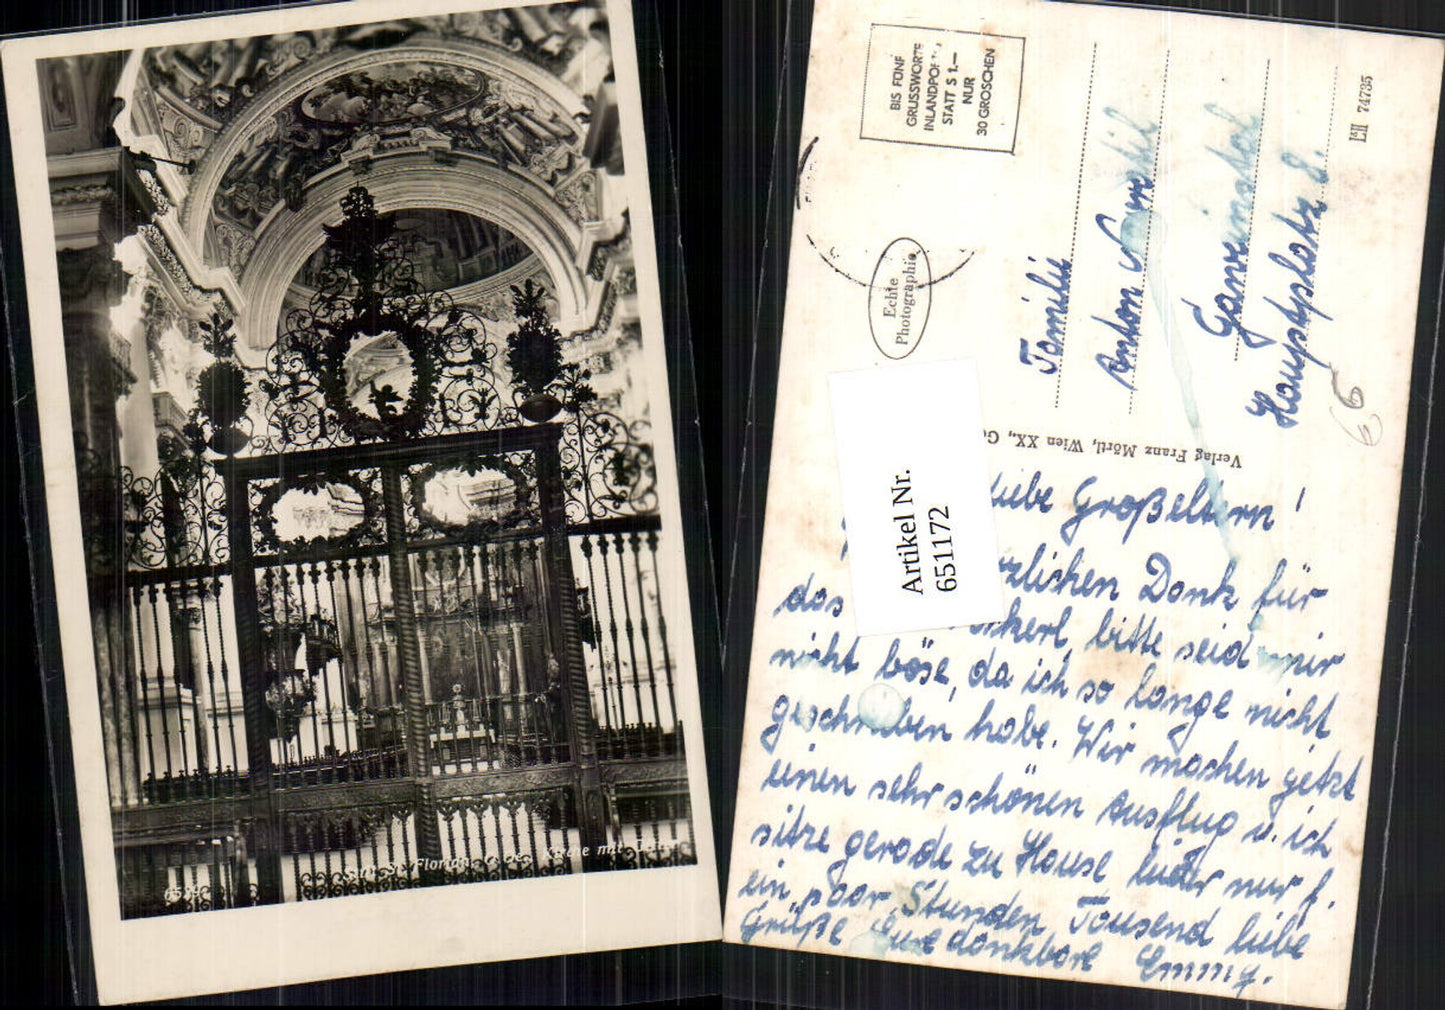 Stift St. Florian, in der Kirche mit
6529
BIS FÜNF
GRUSSWORTE
INLANDPO
STATT S 1.—
NUR
30 GROSCHEN
Echte
Photographie
Familie
Anton
Hauptplatz 8.
L&H 74735
66
Verlag Franz Mörtl, Wien XX., G
Artikel Nr.
6511172
liebe Großeltern!
rzlichen Dank für
das ckerl, bitte seid mir
nicht böse, da ich so lange nicht
geschrieben habe. Wir machen jetzt
einen sehr schönen Ausflug u. ich
sitze gerade zu Hause leider nur f.
ein paar Stunden. Tausend liebe
Grüße Eure dankbare Emmy.